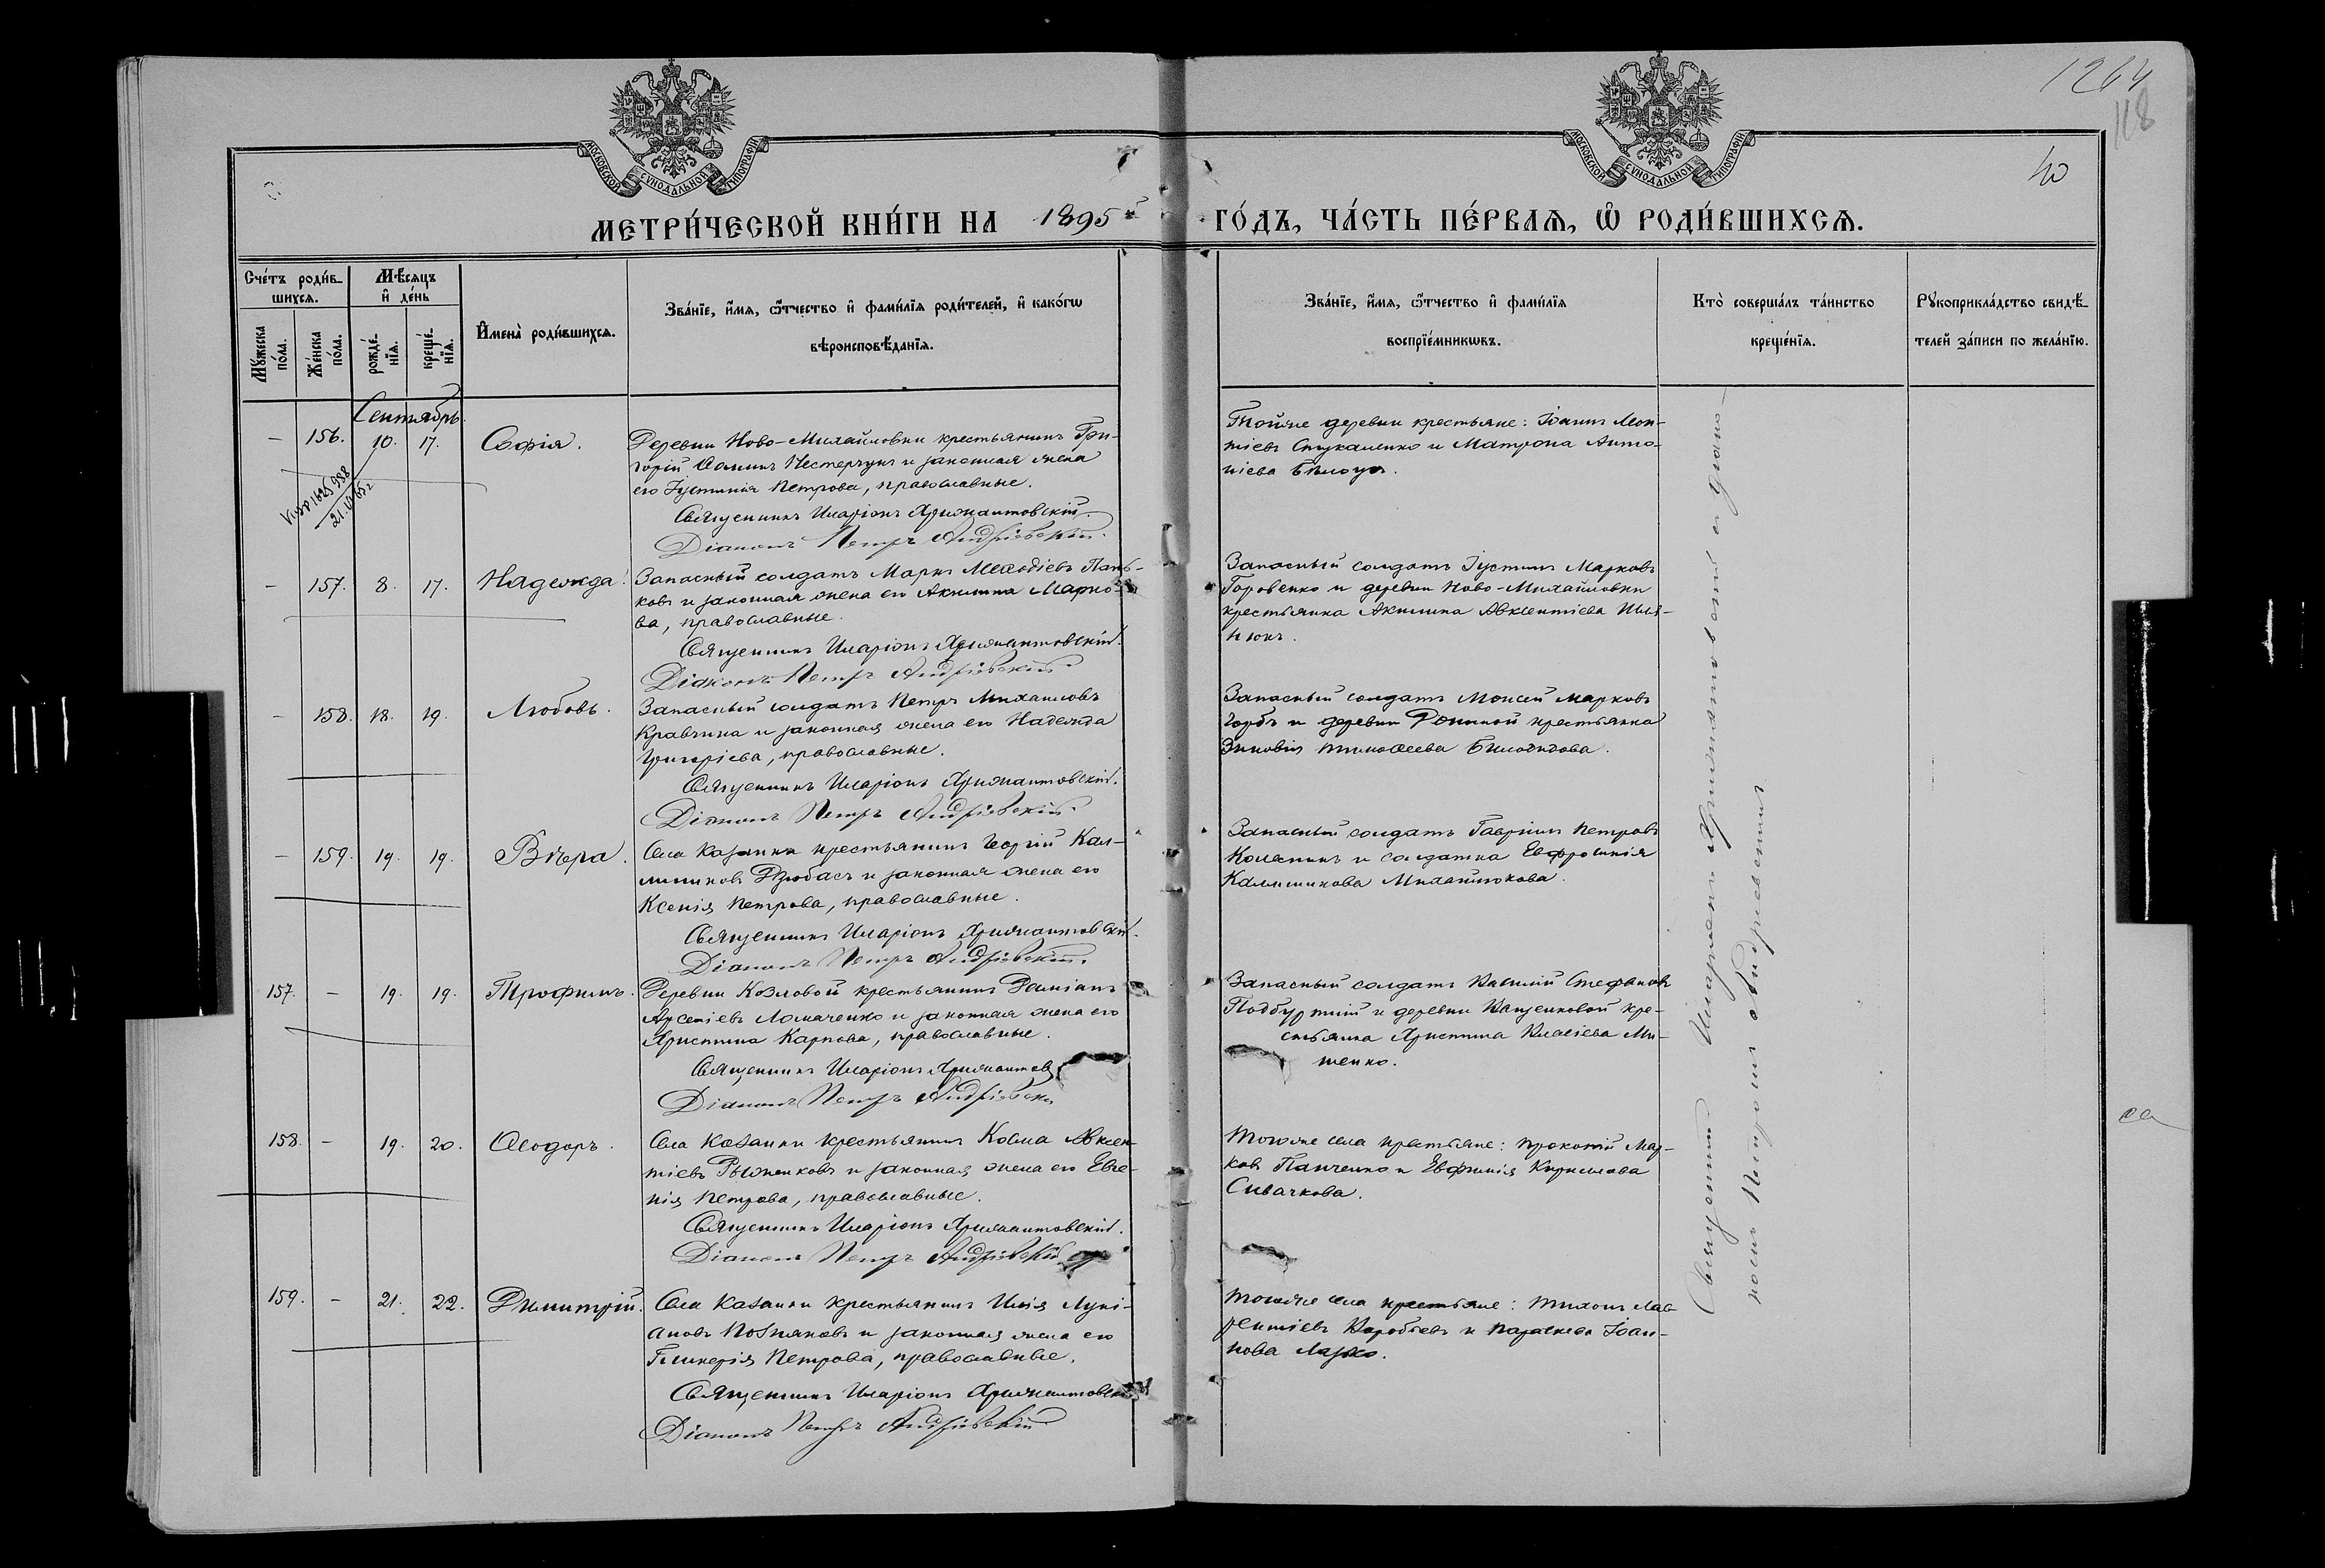 1264
118
40
МОСКОВСКОЙ СУНОДАЛЬНОЙ ТИПОГРАФІИ
МОСКОВСКОЙ СУНОДАЛЬНОЙ ТИПОГРАФІИ
МЕТРИ́ЧЕСКОЙ КНИ́ГИ НА 1895й ГО́ДЪ, ЧА́СТЬ ПЕ́РВАѦ, Ѡ҆ РОДИ́ВШИХСѦ.
Сче́тъ роди́в-
шихсѧ.
Мѣ́сѧцъ
и҆ де́нь
Мꙋ́жеска
по́ла.
Же́нска
по́ла.
рожде́-
нїѧ.
креще́-
нїѧ.
И҆мена̀ роди́вшихсѧ.
Зва́нїе, и҆́мѧ, ѻ҆́тчество и҆ фами́лїѧ роди́телей, и҆ како́гѡ
вѣроисповѣ́данїѧ.
Зва́нїе, и҆́мѧ, ѻ҆́тчество и҆ фами́лїѧ
воспрїе́мникѡвъ.
Кто̀ соверша́лъ та́инство
креще́нїѧ.
Рꙋкоприкла́дство свидѣ́-
телей за́писи по жела́нїю.
Сентябрь.
– 156. 10. 17. Софія.
Деревни Ново-Михайловки крестьянинъ Гри-
горій Ѳоминъ Нестерчукъ и законная жена
его Іустинія Петрова, православные.
Священникъ Иларіонъ
Діаконъ Петръ Андріевскій.
Тойже деревни крестьяне: Іоаннъ Леон-
тіевъ Стукаленко и Матрона Анто-
ніева Бѣлоус.
21.
– 157. 8. 17. Надежда.
Запасный солдатъ Маркъ Меѳодіевъ Пань-
ковъ и законная жена его Акилина Марко-
ва, православные.
Священникъ Иларіонъ
Діаконъ Петръ Андріевскій.
Запасный солдатъ Іустинъ Марковъ
Горовенко и деревни Ново-Михайловки
крестьянка Акилина Авксентіева Шля-
– 158. 18. 19. Любовь.
Запасный солдатъ Петръ Михаиловъ
Кравчина и законная жена его Надежда
Григоріева, православные.
Священникъ Иларіонъ
Діаконъ Петръ Андріевскій.
Запасный солдатъ Моисей Марковъ
Горбъ и деревни крестьянка
Зиновія Тимоѳеева
– 159. 19. 19. Вѣра.
Села Казанки крестьянинъ Георгій Кал-
линиковъ Дзюбасъ и законная жена его
Ксенія Петрова, православные.
Священникъ Иларіонъ
Діаконъ Петръ Андріевскій.
Запасный солдатъ Гавріилъ Петровъ
и солдатка Евфросинія
Каллиникова Михайлюкова.
157. – 19. 19. Трофимъ.
Деревни Козловой крестьянинъ Даміанъ
Арсеніевъ Ломаченко и законная жена его
Христина Карпова, православные.
Священникъ Иларіонъ
Діаконъ Петръ Андріевскі
Запасный солдатъ Василій Стефановъ
и деревни кре-
стьянка Христина Власіева Ми-
шенко.
158. – 19. 20. Ѳеодоръ.
Села Казанки крестьянинъ Косма Авксен-
тіевъ и законная жена его Евге-
нія Петрова, православные.
Священникъ Иларіонъ
Діаконъ Петръ Андріевскій
Тогоже села крестьяне: Прокопій Мар-
ковъ Панченко и Евфимія Кириллова
Сивачкова.
159. – 21. 22. Димитрій.
Села Казанки крестьянинъ Илія Лукі-
ановъ Позняковъ и законная жена его
Гликерія Петрова, православные.
Священникъ Иларіонъ
Діаконъ Петръ Андріевскій
Тогоже села крестьяне: Тихонъ Лав-
рентіевъ Воробьевъ и Параскева Іоан-
нова
Священникъ Иларіонъ съ діако-
номъ Петромъ Андріевскимъ